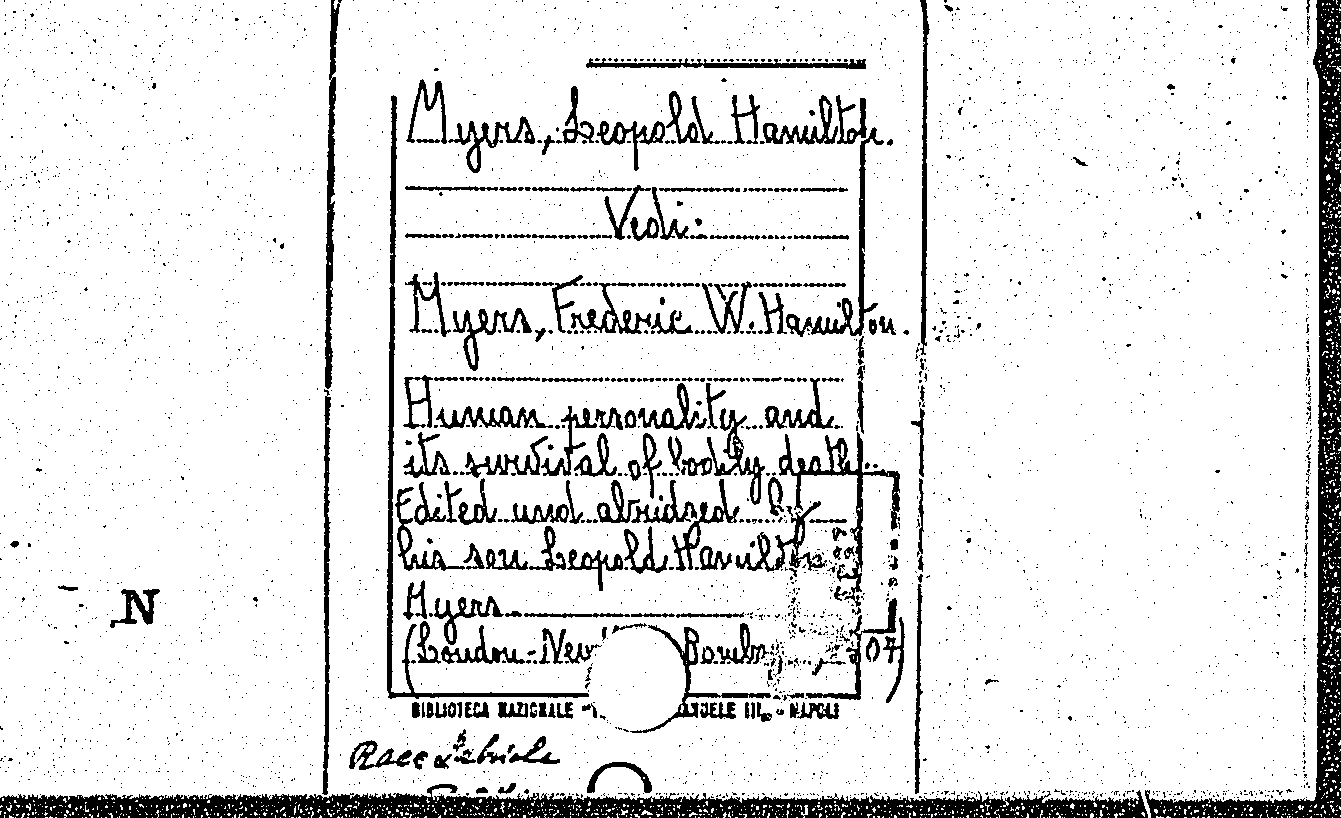 Myers, Leopold Hamilton.
Vedi:
Myers, Frederic W. Hamilton.
Human personality and
its survival of bodily death.
Edited and abridged by
his son Leopold Hamilton
Myers.
(London - New Bombay, 07)
N
BIBLIOTECA NAZIONALE "V. EMANUELE III" - NAPOLI